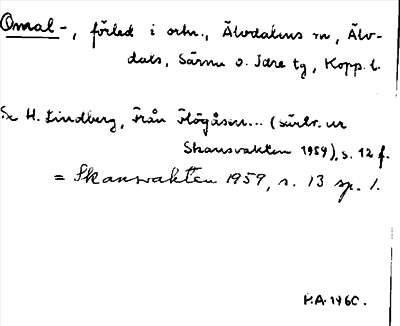 Omal-, förled i ortn., Älvdalens sn, Älv-
dals, Särna o. Idre tg, Kopp. l.
Se H. Lindberg, Från Högåsen... (särtr. ur
Skansvakten 1959), s. 12 f.
= Skansvakten 1959, s. 13 sp. 1.
P.A. 1960.